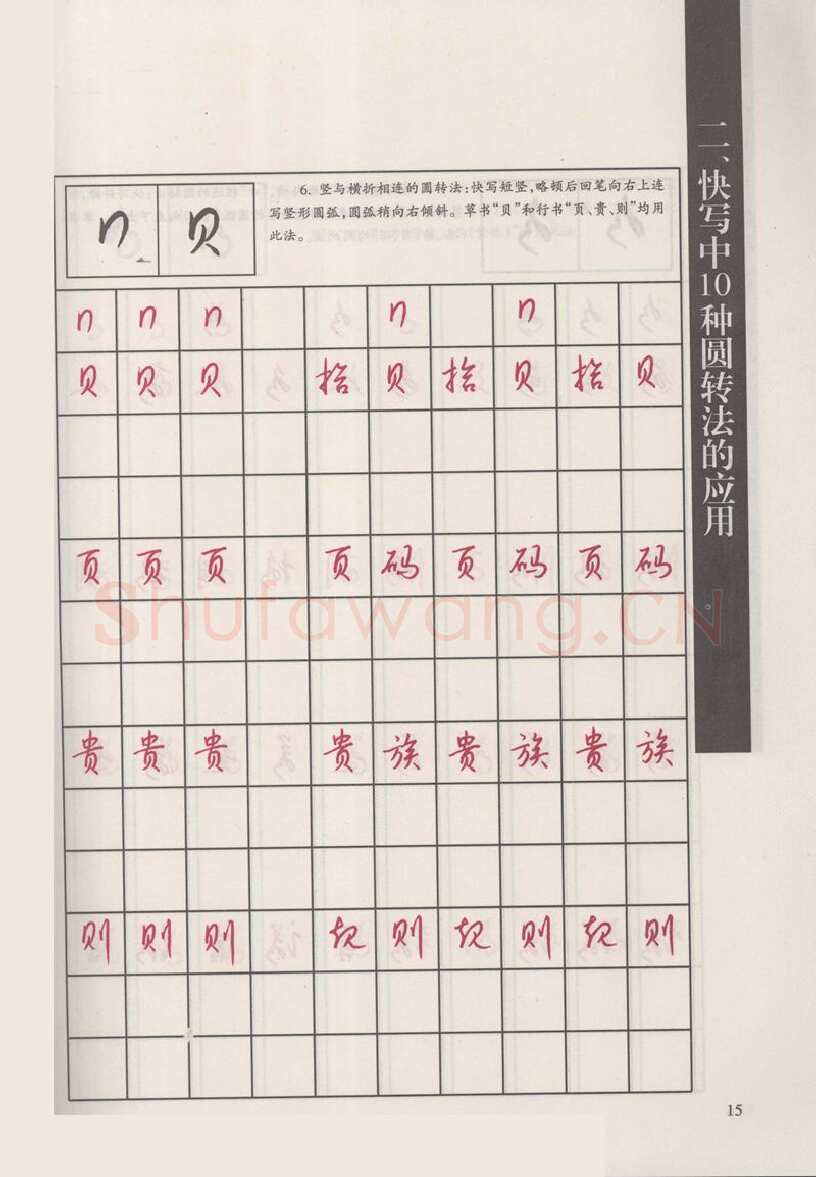 二、快写中10种圆转法的应用
6. 竖与横折相连的圆转法:快写短竖,略顿后回笔向右上连
写竖形圆弧,圆弧稍向右倾斜。草书“贝”和行书“页、贵、则”均用
此法。
贝
贝 贝 贝 拾 贝 拾 贝 拾 贝
页 页 页 页 码 页 码 页 码
Shufawang.CN
贵 贵 贵 贵 族 贵 族 贵 族
则 则 则 规 则 规 则 规 则
15